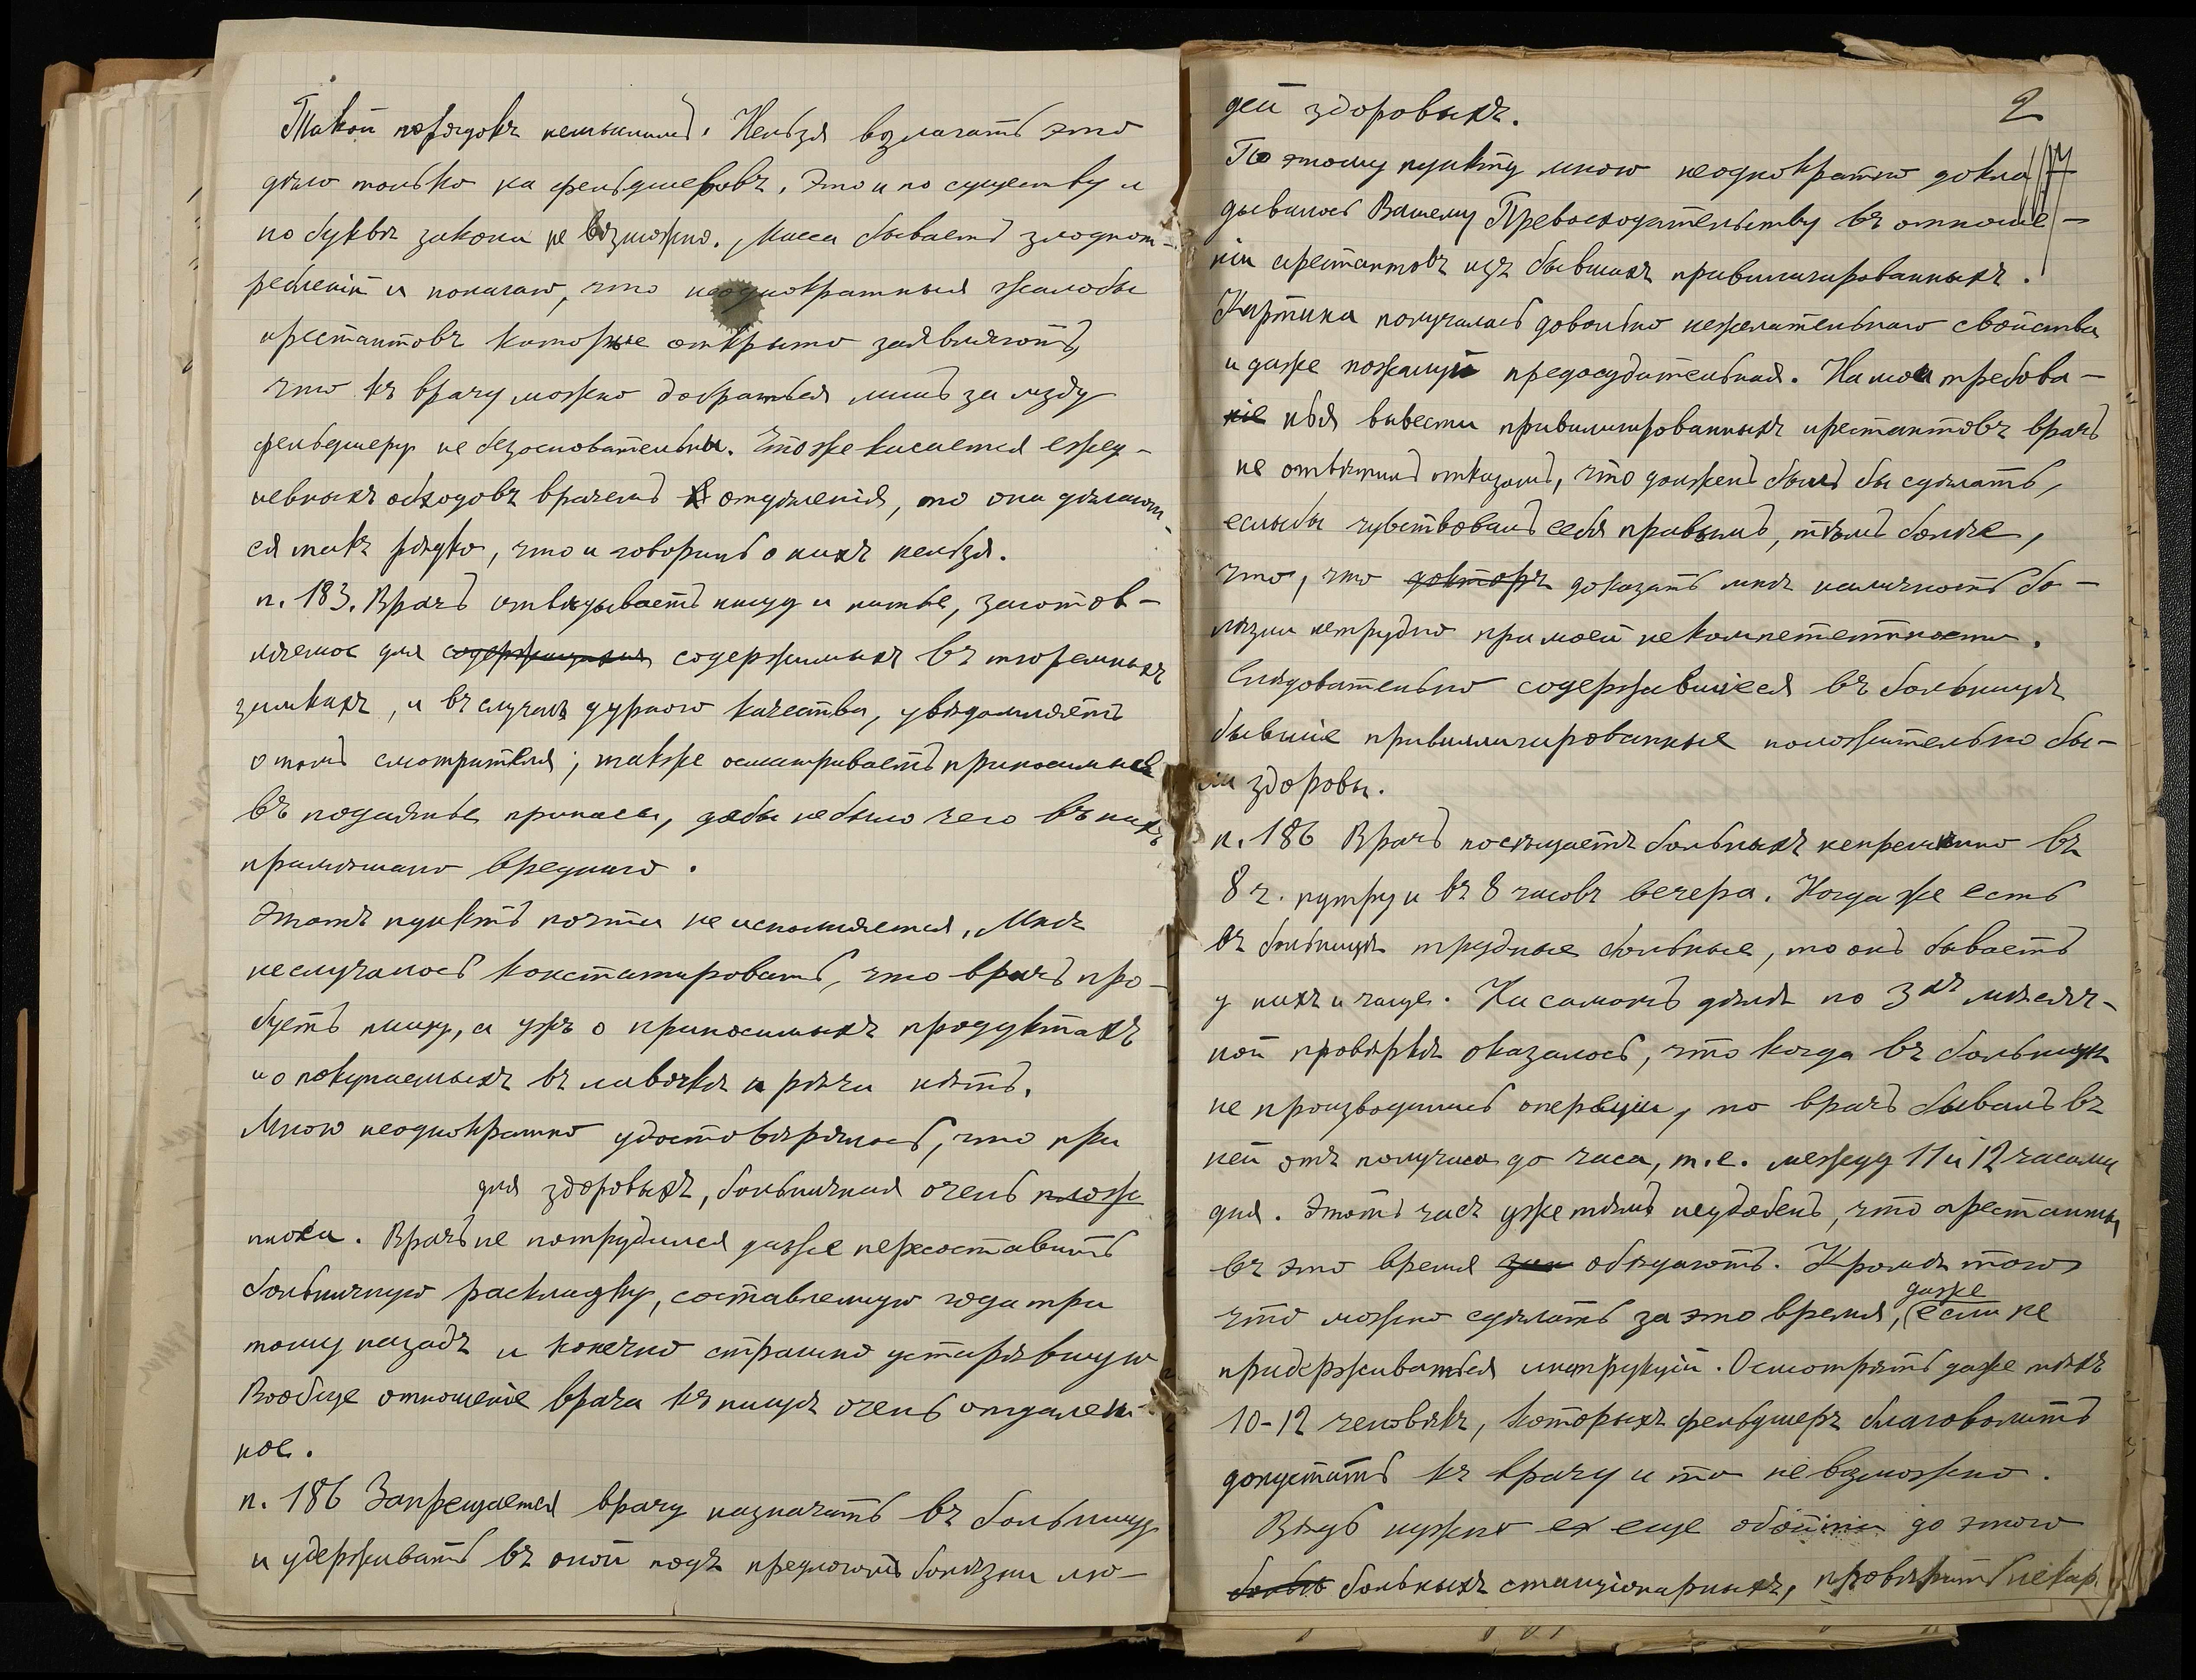 Такой порядокъ немыслимъ. Нельзя возлагать это
дѣло только на фельдшеровъ. Это и по существу и
по буквѣ закона не возможно. Масса бываетъ злоупот-
ребленій и полагаю, что неоднократныя жалобы
арестантовъ которые открыто заявляютъ,
что къ врачу можно добраться лишь за мзду
фельдшеру не безосновательны. Что же касается ежед-
невныхъ обходовъ врачемъ отдѣленія, то они дѣлают-
ся такъ рѣдко, что и говорить о нихъ нельзя.
п. 183. Врачъ отвѣдываетъ пищу и питье, заготов-
ляемое для содержащихся содержимыхъ въ тюремныхъ
замкахъ, и въ случаѣ дурного качества, увѣдомляетъ
о томъ смотрителя; также осматриваетъ приносимые
въ подаянье припасы, дабы не было чего въ нихъ
примѣшано вреднаго.
Этотъ пунктъ почти не исполняется. Мнѣ
неслучалось констатировать, что врачъ про-
буетъ пищу, а ужъ о приносимыхъ продуктахъ
и о покупаемыхъ въ лавочкѣ и рѣчи нѣтъ.
Мною неоднократно удостовѣрялось, что при
для здоровыхъ, больничная очень плохо
плоха. Врачъ не потрудился даже пересоставить
больничную раскладку, составленную года три
тому назадъ и конечно страшно устарѣвшую
Вообще отношеніе врача къ пищѣ очень отдален-
ное.
п. 186 Запрещается врачу назначать въ больницу
и удерживать въ оной подъ предлогомъ болѣзни лю-
дей здоровыхъ.
2
По этому пункту мною неоднократно докла-
дывалось Вашему Превосходительству въ отноше-
ніи арестантовъ изъ бывшихъ привилигированныхъ.
Картина получалась довольно нежелательнаго свойства
и даже пожалуй предосудительная. На мои требова-
нія вывести привилигированныхъ арестантовъ врачъ
не отвѣтилъ отказомъ, что долженъ былъ бы сдѣлать,
еслибы чувствовалъ себя правымъ, тѣмъ болѣе,
что, что докторъ доказать мнѣ наличность бо-
лѣзни нетрудно при моей некомпетентности.
Слѣдовательно содержавшіеся въ больницѣ
бывшіе привиллигированные положительно бы-
ли здоровы.
п. 186 Врачъ посѣщаетъ больныхъ непремѣнно въ
8 ч. поутру и въ 8 часовъ вечера. Когда же есть
въ больницѣ трудные больные, то онъ бываетъ
у нихъ и чаще. На самомъ дѣлѣ по 3хъ мѣсяч-
ной провѣркѣ оказалось, что когда въ больницѣ
не производились операціи, то врачъ бывалъ въ
ней отъ получаса до часа, т.е. между 11 и 12 часами
дня. Этотъ часъ уже тѣмъ неудобенъ, что арестанты
въ это время обѣдаютъ. Кромѣ того
даже
что можно сдѣлать за это время, (если не
придерживаться инструкціи. Осмотрѣть даже тѣхъ
10-12 человѣкъ, которыхъ фельдшеръ благоволитъ
допустить къ врачу и то не возможно.
Вѣдь нужно еще обойти до этого
больн больныхъ стаціонарныхъ, провѣрить